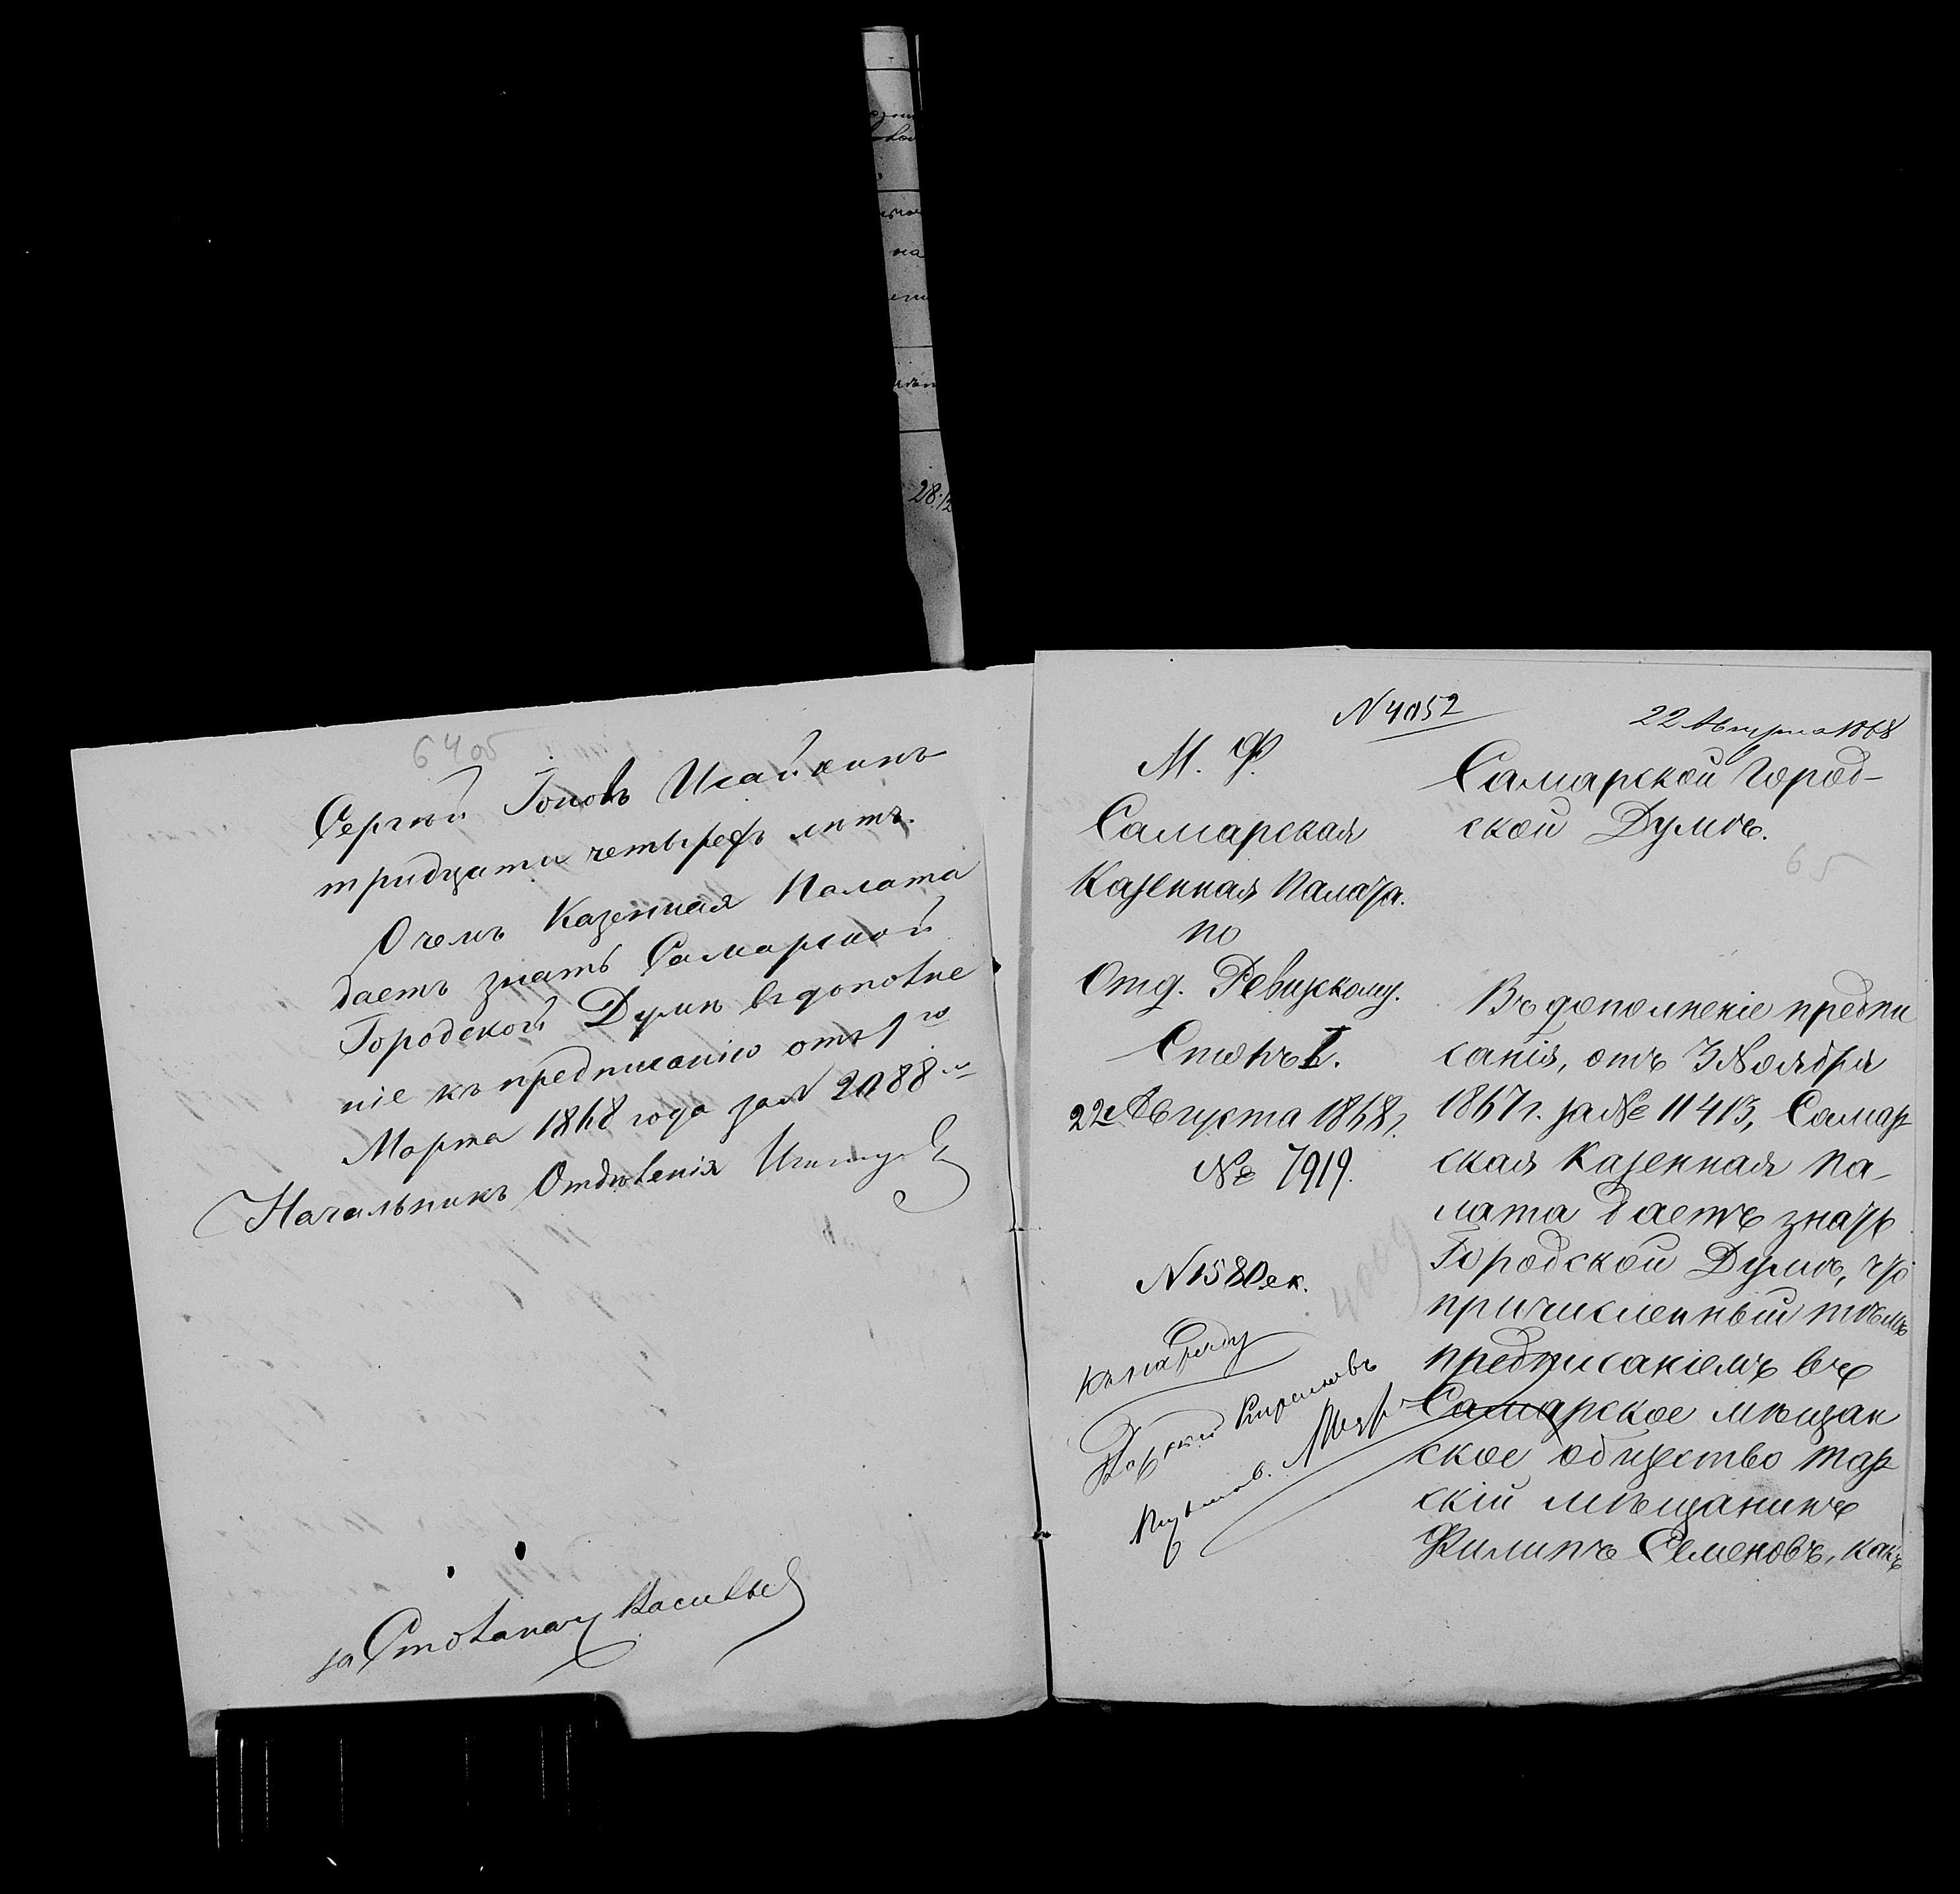 64 об
Сергей Іоновъ Исайкинъ
тридцати четырехъ лѣтъ.
О чемъ Казенная Палата
даетъ знать Самарской
Городской Думѣ въ дополне
ніе къ предписанію отъ 1го
Марта 1868 года за N 2088мъ
Начальникъ Отдѣленія
за Столонач Васильев
28
N 4052
22 Августа 1868
М. Ф.
Самарская
Казенная Палата.
по
Отд. Ревизскому.
Столъ I.
22 Августа 1868 г.
№ 7919.
N 1580 ек.
къ наряду
Самарской Город-
ской Думѣ.
65
Въ дополненіе предпи
санія, отъ 3 Ноября
1867 г. за № 11413, Самар
ская Казенная Па-
лата даетъ знать
Городской Думѣ, что
причисленный тѣмъ
предписаніемъ въ
Самарское мѣщан
ское общество тар
скій мѣщанинъ
Филипъ Семеновъ, какъ